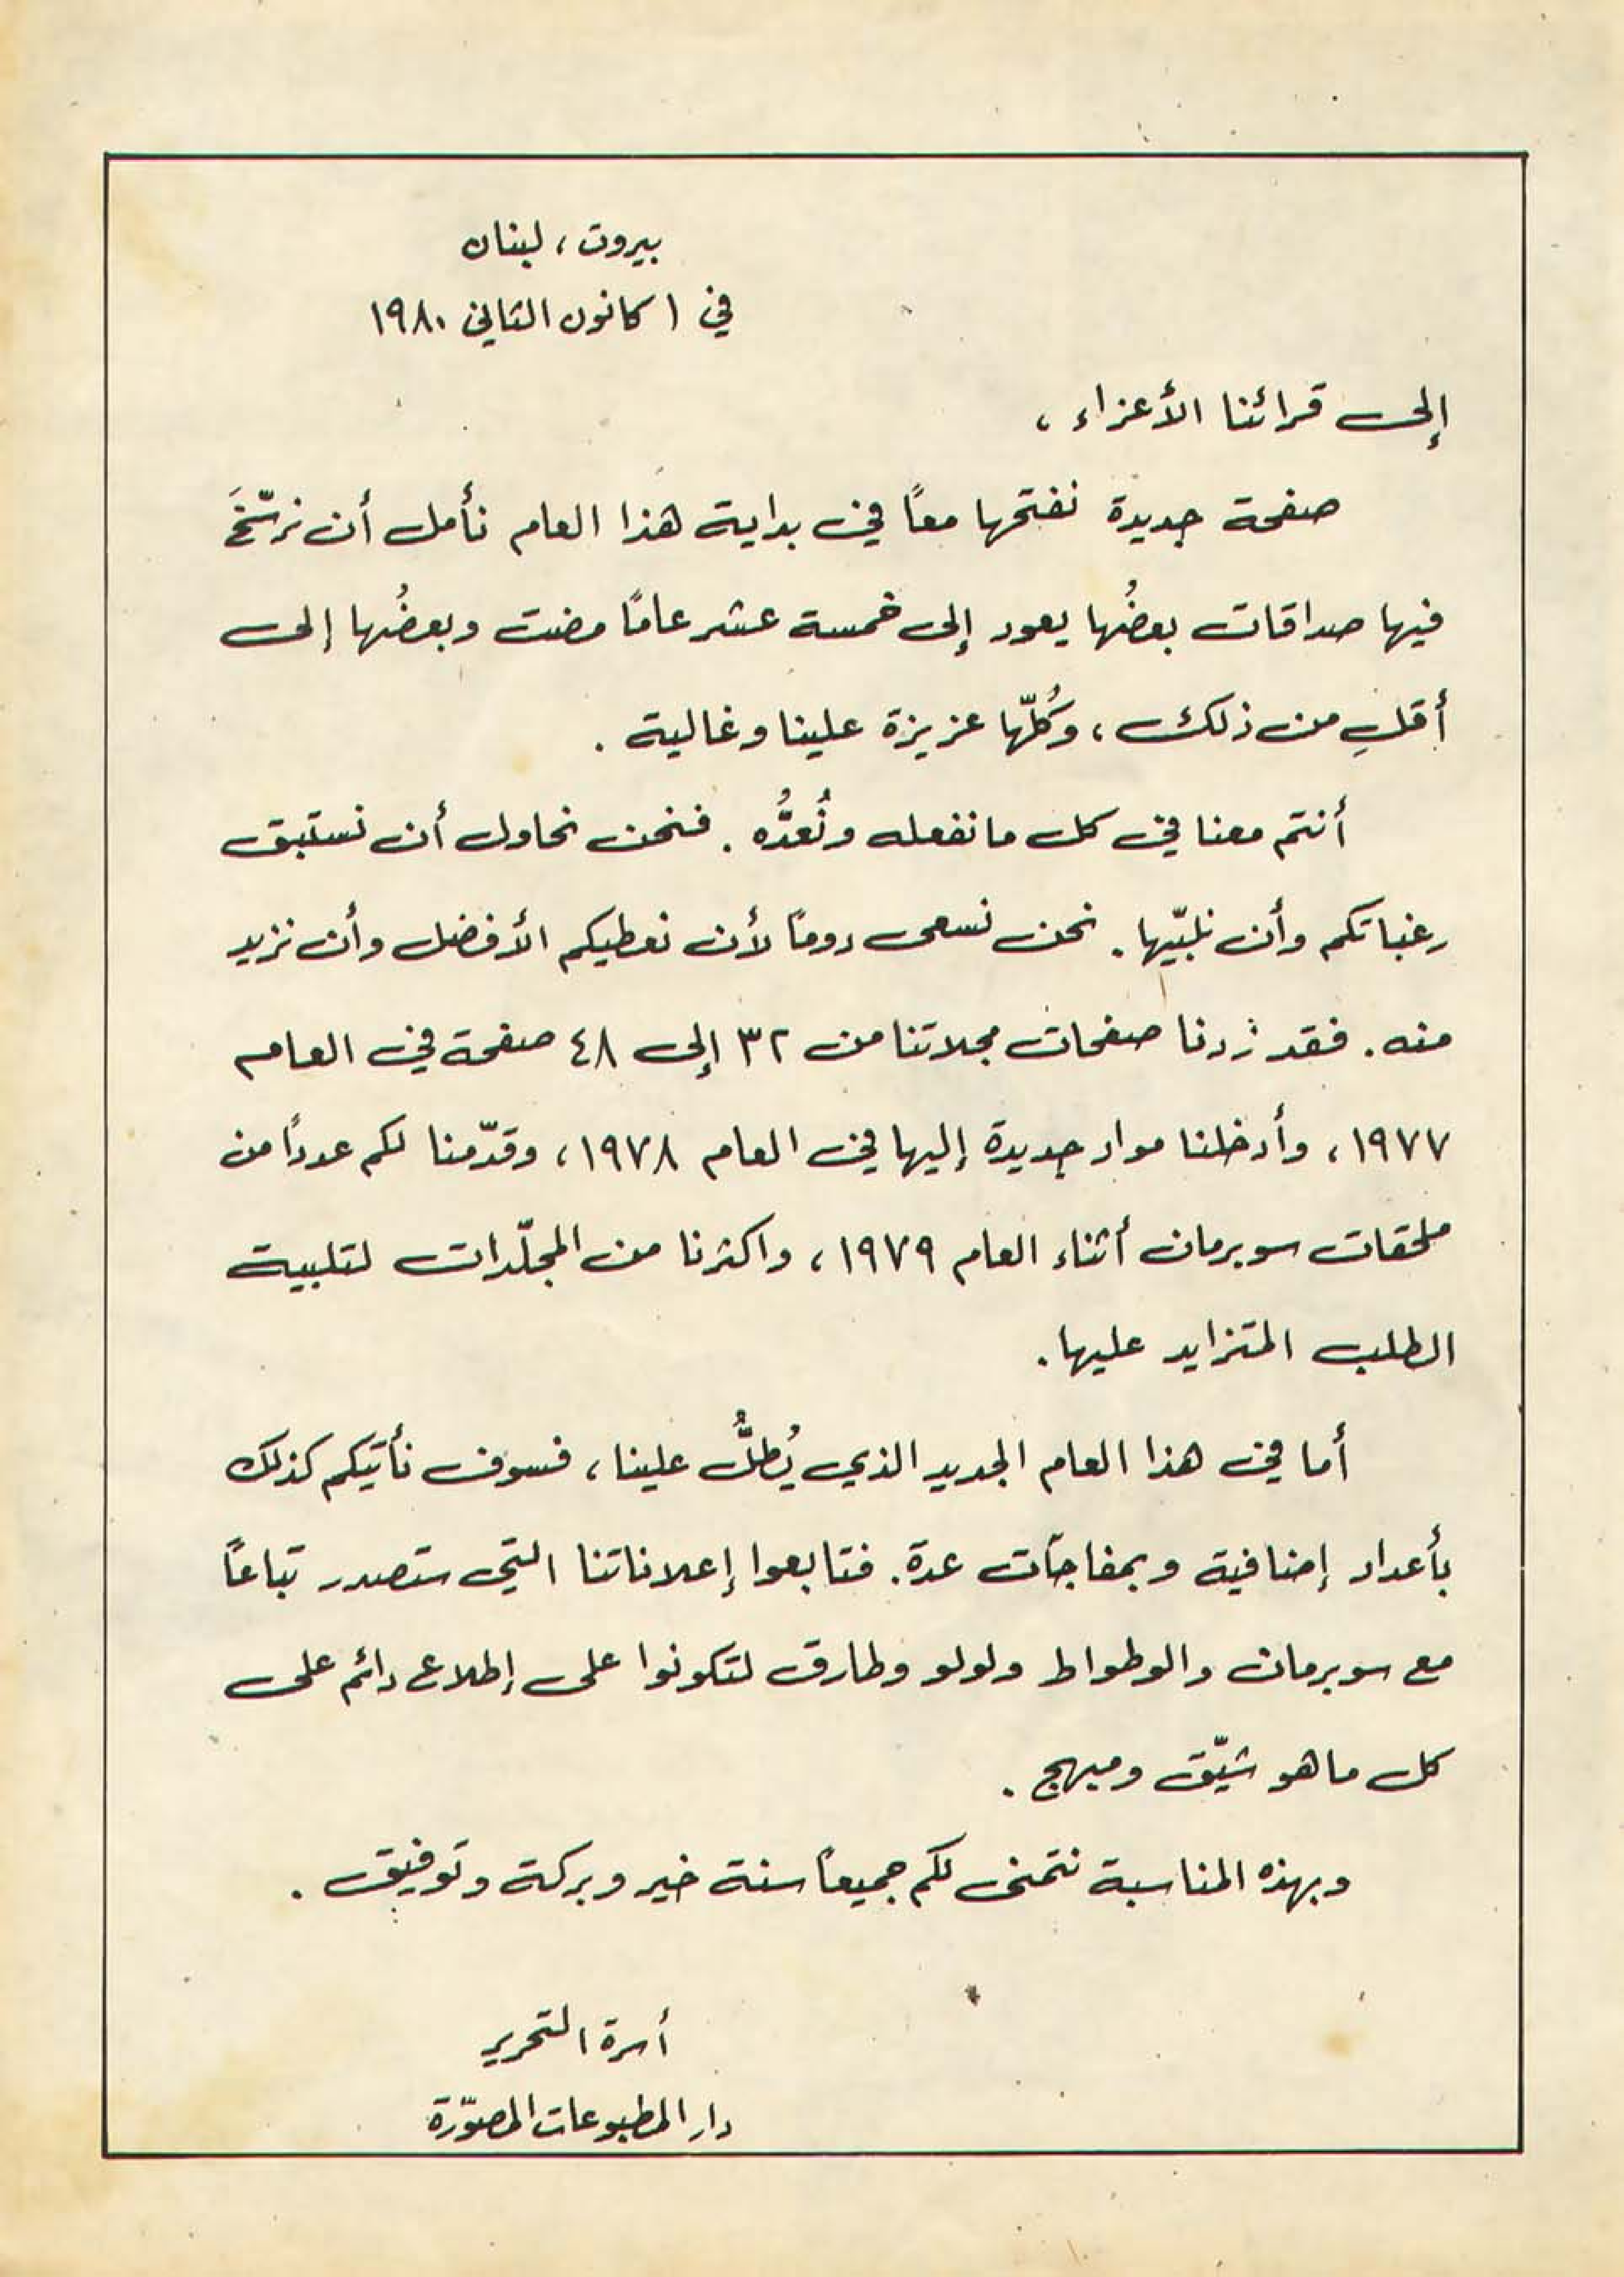 بيروت، لبنان
في ١ كانون الثاني ١٩٨٠
إلى قرائنا الأعزاء،
صفحة جديدة نفتحها معاً في بداية هذا العام نأمل أن نرسّخَ
فيها صداقات بعضُها يعود إلى خمسة عشر عامًا مضت وبعضُها إلى
أقلِ من ذلك، وكُلّها عزيزة علينا وغالية.
أنتم معنا في كل ما نفعله ونُعدُّه. فنحن نحاول أن نستبق
رغباتكم وأن نلبّيها. نحن نسعى دومًا لأن نعطيكم الأفضل وأن نزيد
منه. فقد زدنا صفحات مجلاتنا من ٣٢ إلى ٤٨ صفحة في العام
١٩٧٧، وأدخلنا مواد جديدة إليها في العام ١٩٧٨، وقدّمنا لكم عددًا من
ملحقات سوبرمان أثناء العام ١٩٧٩، واكثرنا من المجلّدات لتلبية
الطلب المتزايد عليها.
أما في هذا العام الجديد الذي يُطلُّ علينا، فسوف نأتيكم كذلك
بأعداد إضافية وبمفاجآت عدة. فتابعوا إعلاناتنا التي ستصدر تباعًا
مع سوبرمان والوطواط ولولو وطارق لتكونوا على إطلاع دائم على
كل ما هو شيّق ومبهج.
وبهذه المناسبة نتمنى لكم جميعاً سنة خير وبركة وتوفيق.
أسرة التحرير
دار المطبوعات المصوّرة